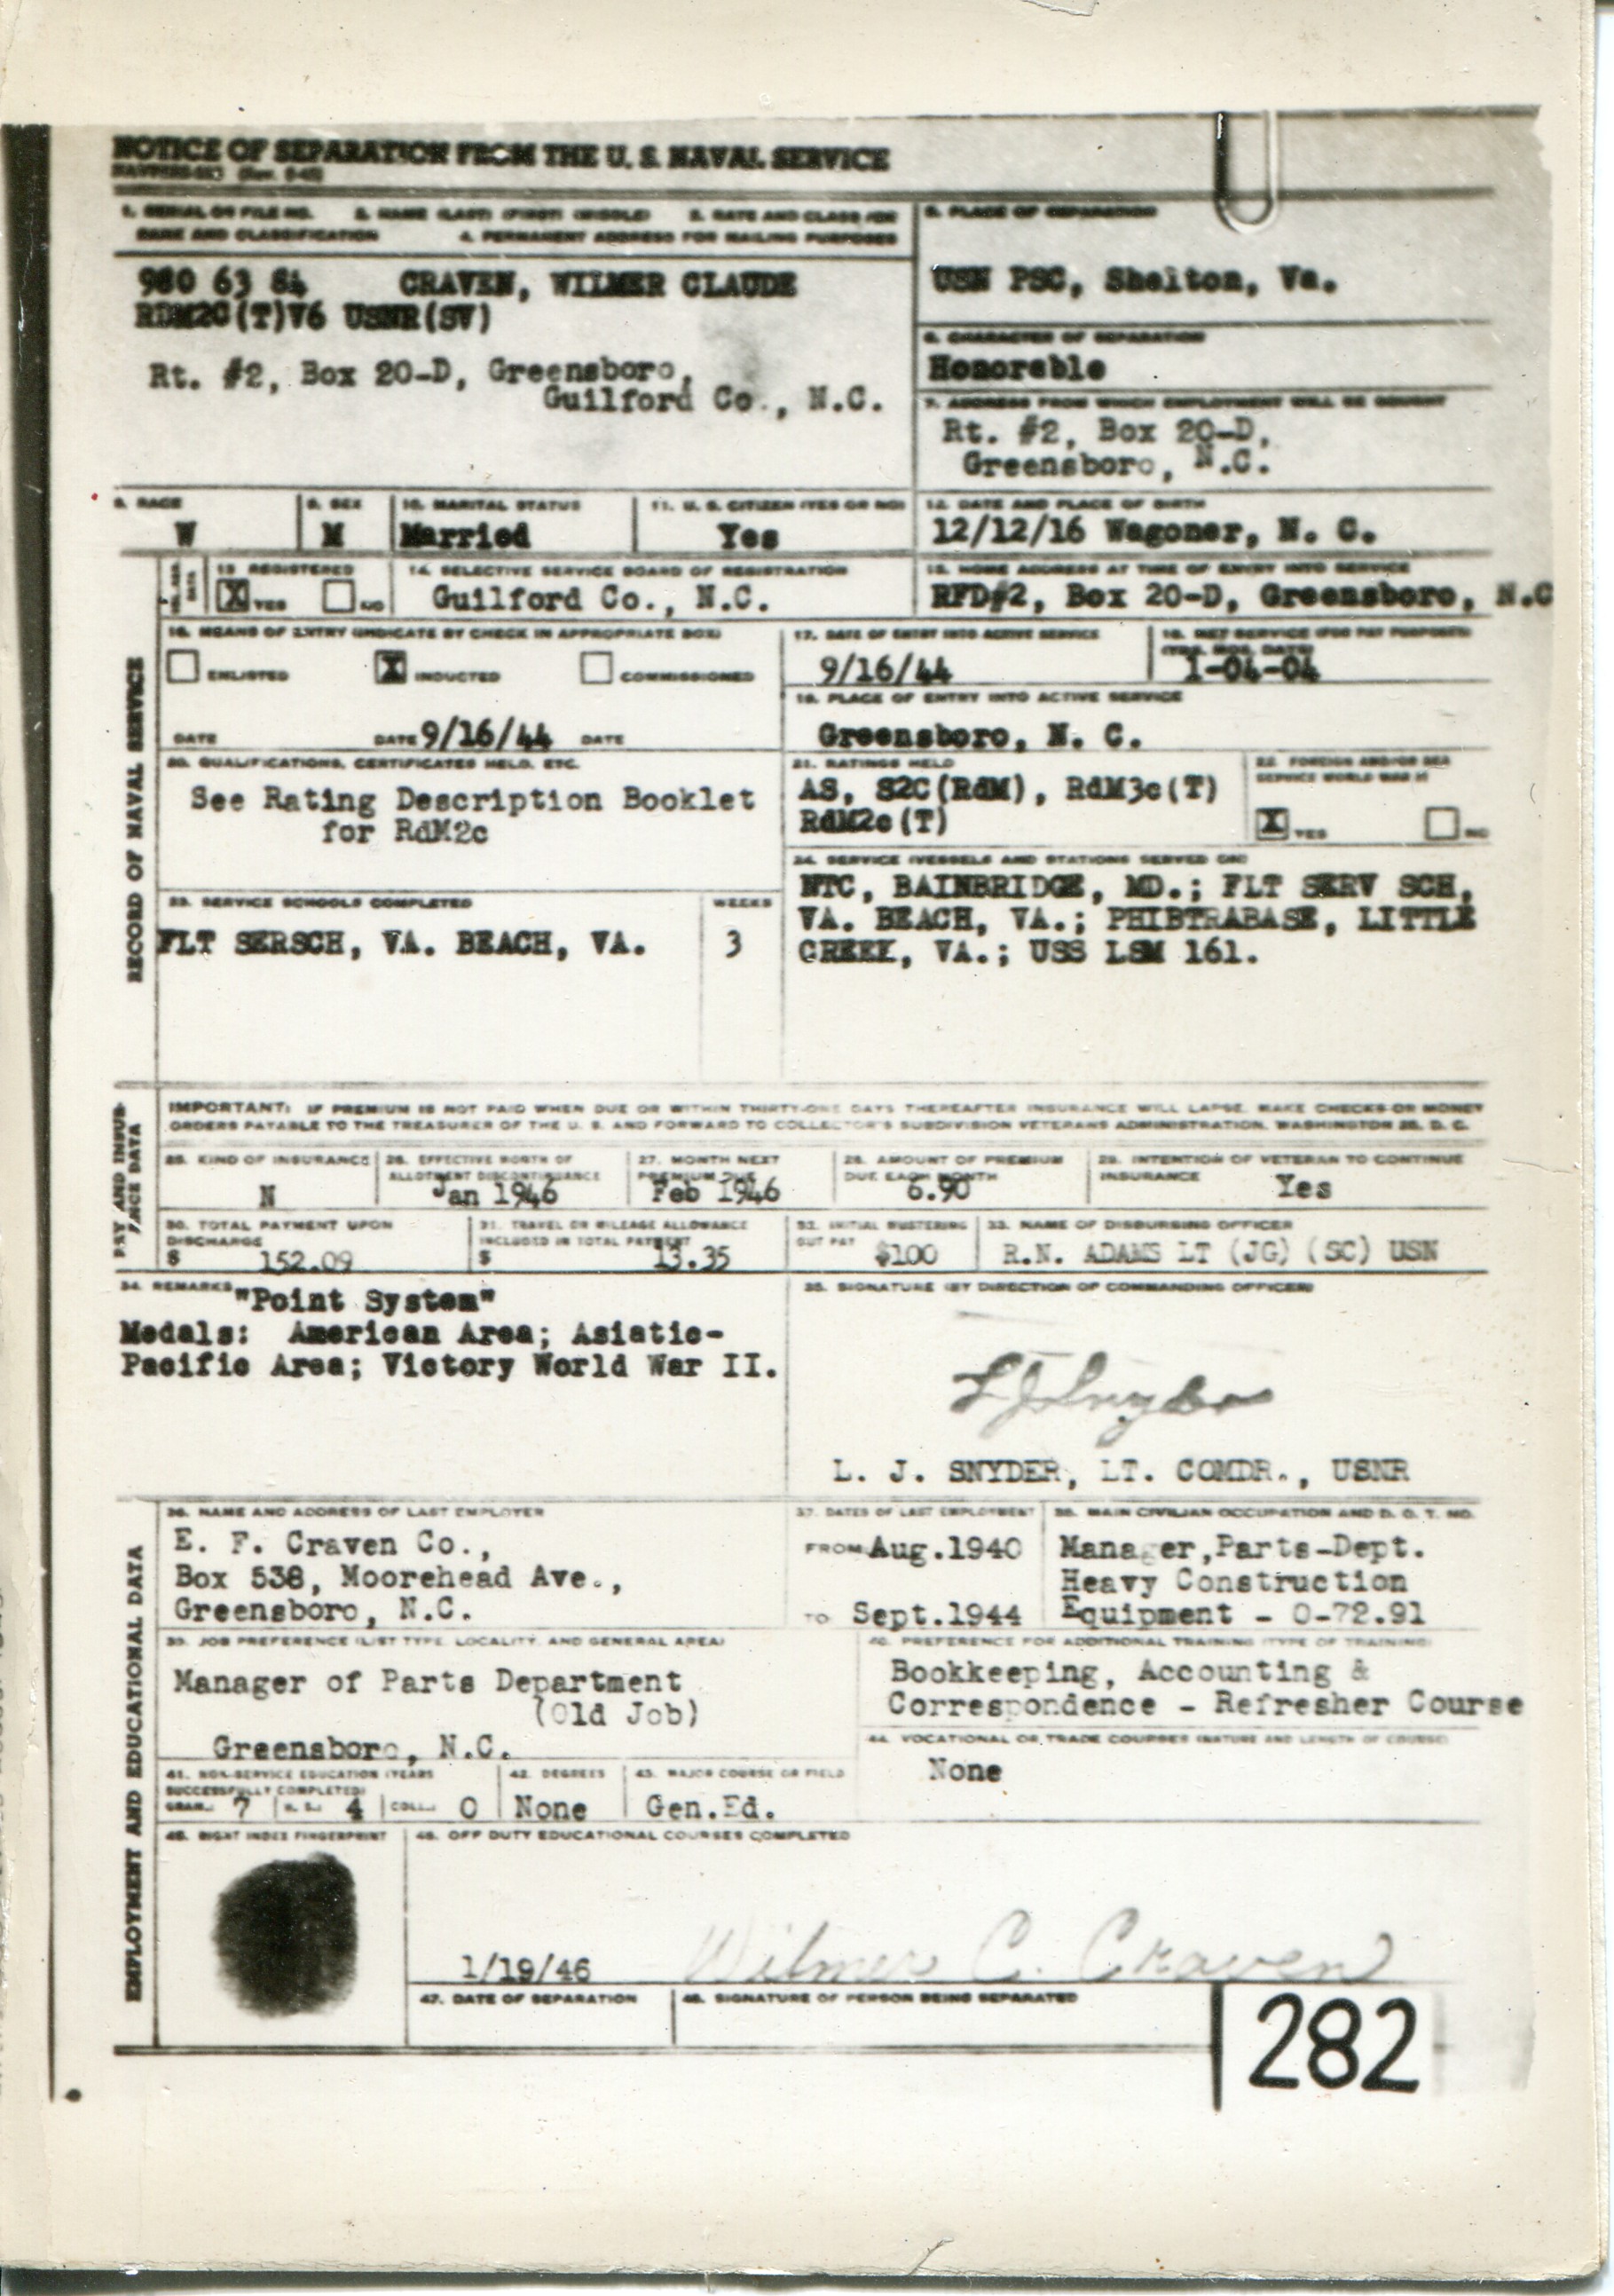 NOTICE OF SEPARATION FROM THE U. S. NAVAL SERVICE
1. SERIAL OR FILE NO. 2. NAME (LAST) (FIRST) (MIDDLE) 3. RATE AND CLASS/OR
RANK AND CLASSIFICATION 4. PERMANENT ADDRESS FOR MAILING PURPOSES
980 63 84 CRAVEN, WILMER CLAUDE
RDM2C(T)V6 USNR(SV)
Rt. #2, Box 20-D, Greensboro,
Guilford Co., N.C.
5. PLACE OF SEPARATION
USN PSC, Shelton, Va.
6. CHARACTER OF SEPARATION
Honorable
7. ADDRESS FROM WHICH EMPLOYMENT WILL BE SOUGHT
Rt. #2, Box 20-D,
Greensboro, N.C.
8. RACE
W
9. SEX
M
10. MARITAL STATUS
Married
11. U. S. CITIZEN (YES OR NO)
Yes
12. DATE AND PLACE OF BIRTH
12/12/16 Wagoner, N. C.
13 REGISTERED
X YES NO
14. SELECTIVE SERVICE BOARD OF REGISTRATION
Guilford Co., N.C.
15. HOME ADDRESS AT TIME OF ENTRY INTO SERVICE
RFD#2, Box 20-D, Greensboro, N.C
RECORD OF NAVAL SERVICE
16. MEANS OF ENTRY (INDICATE BY CHECK IN APPROPRIATE BOX)
ENLISTED X INDUCTED COMMISSIONED
DATE DATE 9/16/44 DATE
17. DATE OF ENTRY INTO ACTIVE SERVICE
9/16/44
18. NET SERVICE (FOR PAY PURPOSES)
(YRS. MOS. DAYS)
1-04-04
19. PLACE OF ENTRY INTO ACTIVE SERVICE
Greensboro, N. C.
20. QUALIFICATIONS, CERTIFICATES HELD, ETC.
See Rating Description Booklet
for RdM2c
21. RATINGS HELD
AS, S2C(RdM), RdM3c(T)
RdM2c(T)
22. FOREIGN AND/OR SEA
SERVICE WORLD WAR II
X YES NO
23. SERVICE SCHOOLS COMPLETED WEEKS
FLT SERSCH, VA. BEACH, VA. 3
24. SERVICE (VESSELS AND STATIONS SERVED ON)
NTC, BAINBRIDGE, MD.; FLT SERV SCH,
VA. BEACH, VA.; PHIBTRABASE, LITTLE
CREEK, VA.; USS LSM 161.
PAY AND INSUR-
ANCE DATA
IMPORTANT: IF PREMIUM IS NOT PAID WHEN DUE OR WITHIN THIRTY-ONE DAYS THEREAFTER INSURANCE WILL LAPSE. MAKE CHECKS OR MONEY
ORDERS PAYABLE TO THE TREASURER OF THE U. S. AND FORWARD TO COLLECTOR'S SUBDIVISION VETERANS ADMINISTRATION, WASHINGTON 25, D. C.
25. KIND OF INSURANCE
N
26. EFFECTIVE MONTH OF
ALLOTMENT DISCONTINUANCE
Jan 1946
27. MONTH NEXT
PREMIUM DUE
Feb 1946
28. AMOUNT OF PREMIUM
DUE EACH MONTH
6.90
29. INTENTION OF VETERAN TO CONTINUE
INSURANCE
Yes
30. TOTAL PAYMENT UPON
DISCHARGE
$ 152.09
31. TRAVEL OR MILEAGE ALLOWANCE
INCLUDED IN TOTAL PAYMENT
$ 13.35
32. INITIAL MUSTERING
OUT PAY
$100
33. NAME OF DISBURSING OFFICER
R.N. ADAMS LT (JG) (SC) USN
34. REMARKS "Point System"
Medals: American Area; Asiatic-
Pacific Area; Victory World War II.
35. SIGNATURE (BY DIRECTION OF COMMANDING OFFICER)
L J Snyder
L. J. SNYDER, LT. COMDR., USNR
EMPLOYMENT AND EDUCATIONAL DATA
36. NAME AND ADDRESS OF LAST EMPLOYER
E. F. Craven Co.,
Box 538, Moorehead Ave.,
Greensboro, N.C.
37. DATES OF LAST EMPLOYMENT
FROM Aug.1940
TO Sept.1944
38. MAIN CIVILIAN OCCUPATION AND D. O. T. NO.
Manager,Parts-Dept.
Heavy Construction
Equipment - 0-72.91
39. JOB PREFERENCE (LIST TYPE, LOCALITY, AND GENERAL AREA)
Manager of Parts Department
(Old Job)
Greensboro, N.C.
40. PREFERENCE FOR ADDITIONAL TRAINING (TYPE OF TRAINING)
Bookkeeping, Accounting &
Correspondence - Refresher Course
41. NON-SERVICE EDUCATION (YEARS
SUCCESSFULLY COMPLETED)
GRAM. 7 H. S. 4 COLL. 0
42. DEGREES
None
43. MAJOR COURSE OR FIELD
Gen.Ed.
44. VOCATIONAL OR TRADE COURSES (NATURE AND LENGTH OF COURSE)
None
45. RIGHT INDEX FINGERPRINT
46. OFF DUTY EDUCATIONAL COURSES COMPLETED
1/19/46 Wilmer C. Craven
47. DATE OF SEPARATION 48. SIGNATURE OF PERSON BEING SEPARATED
282